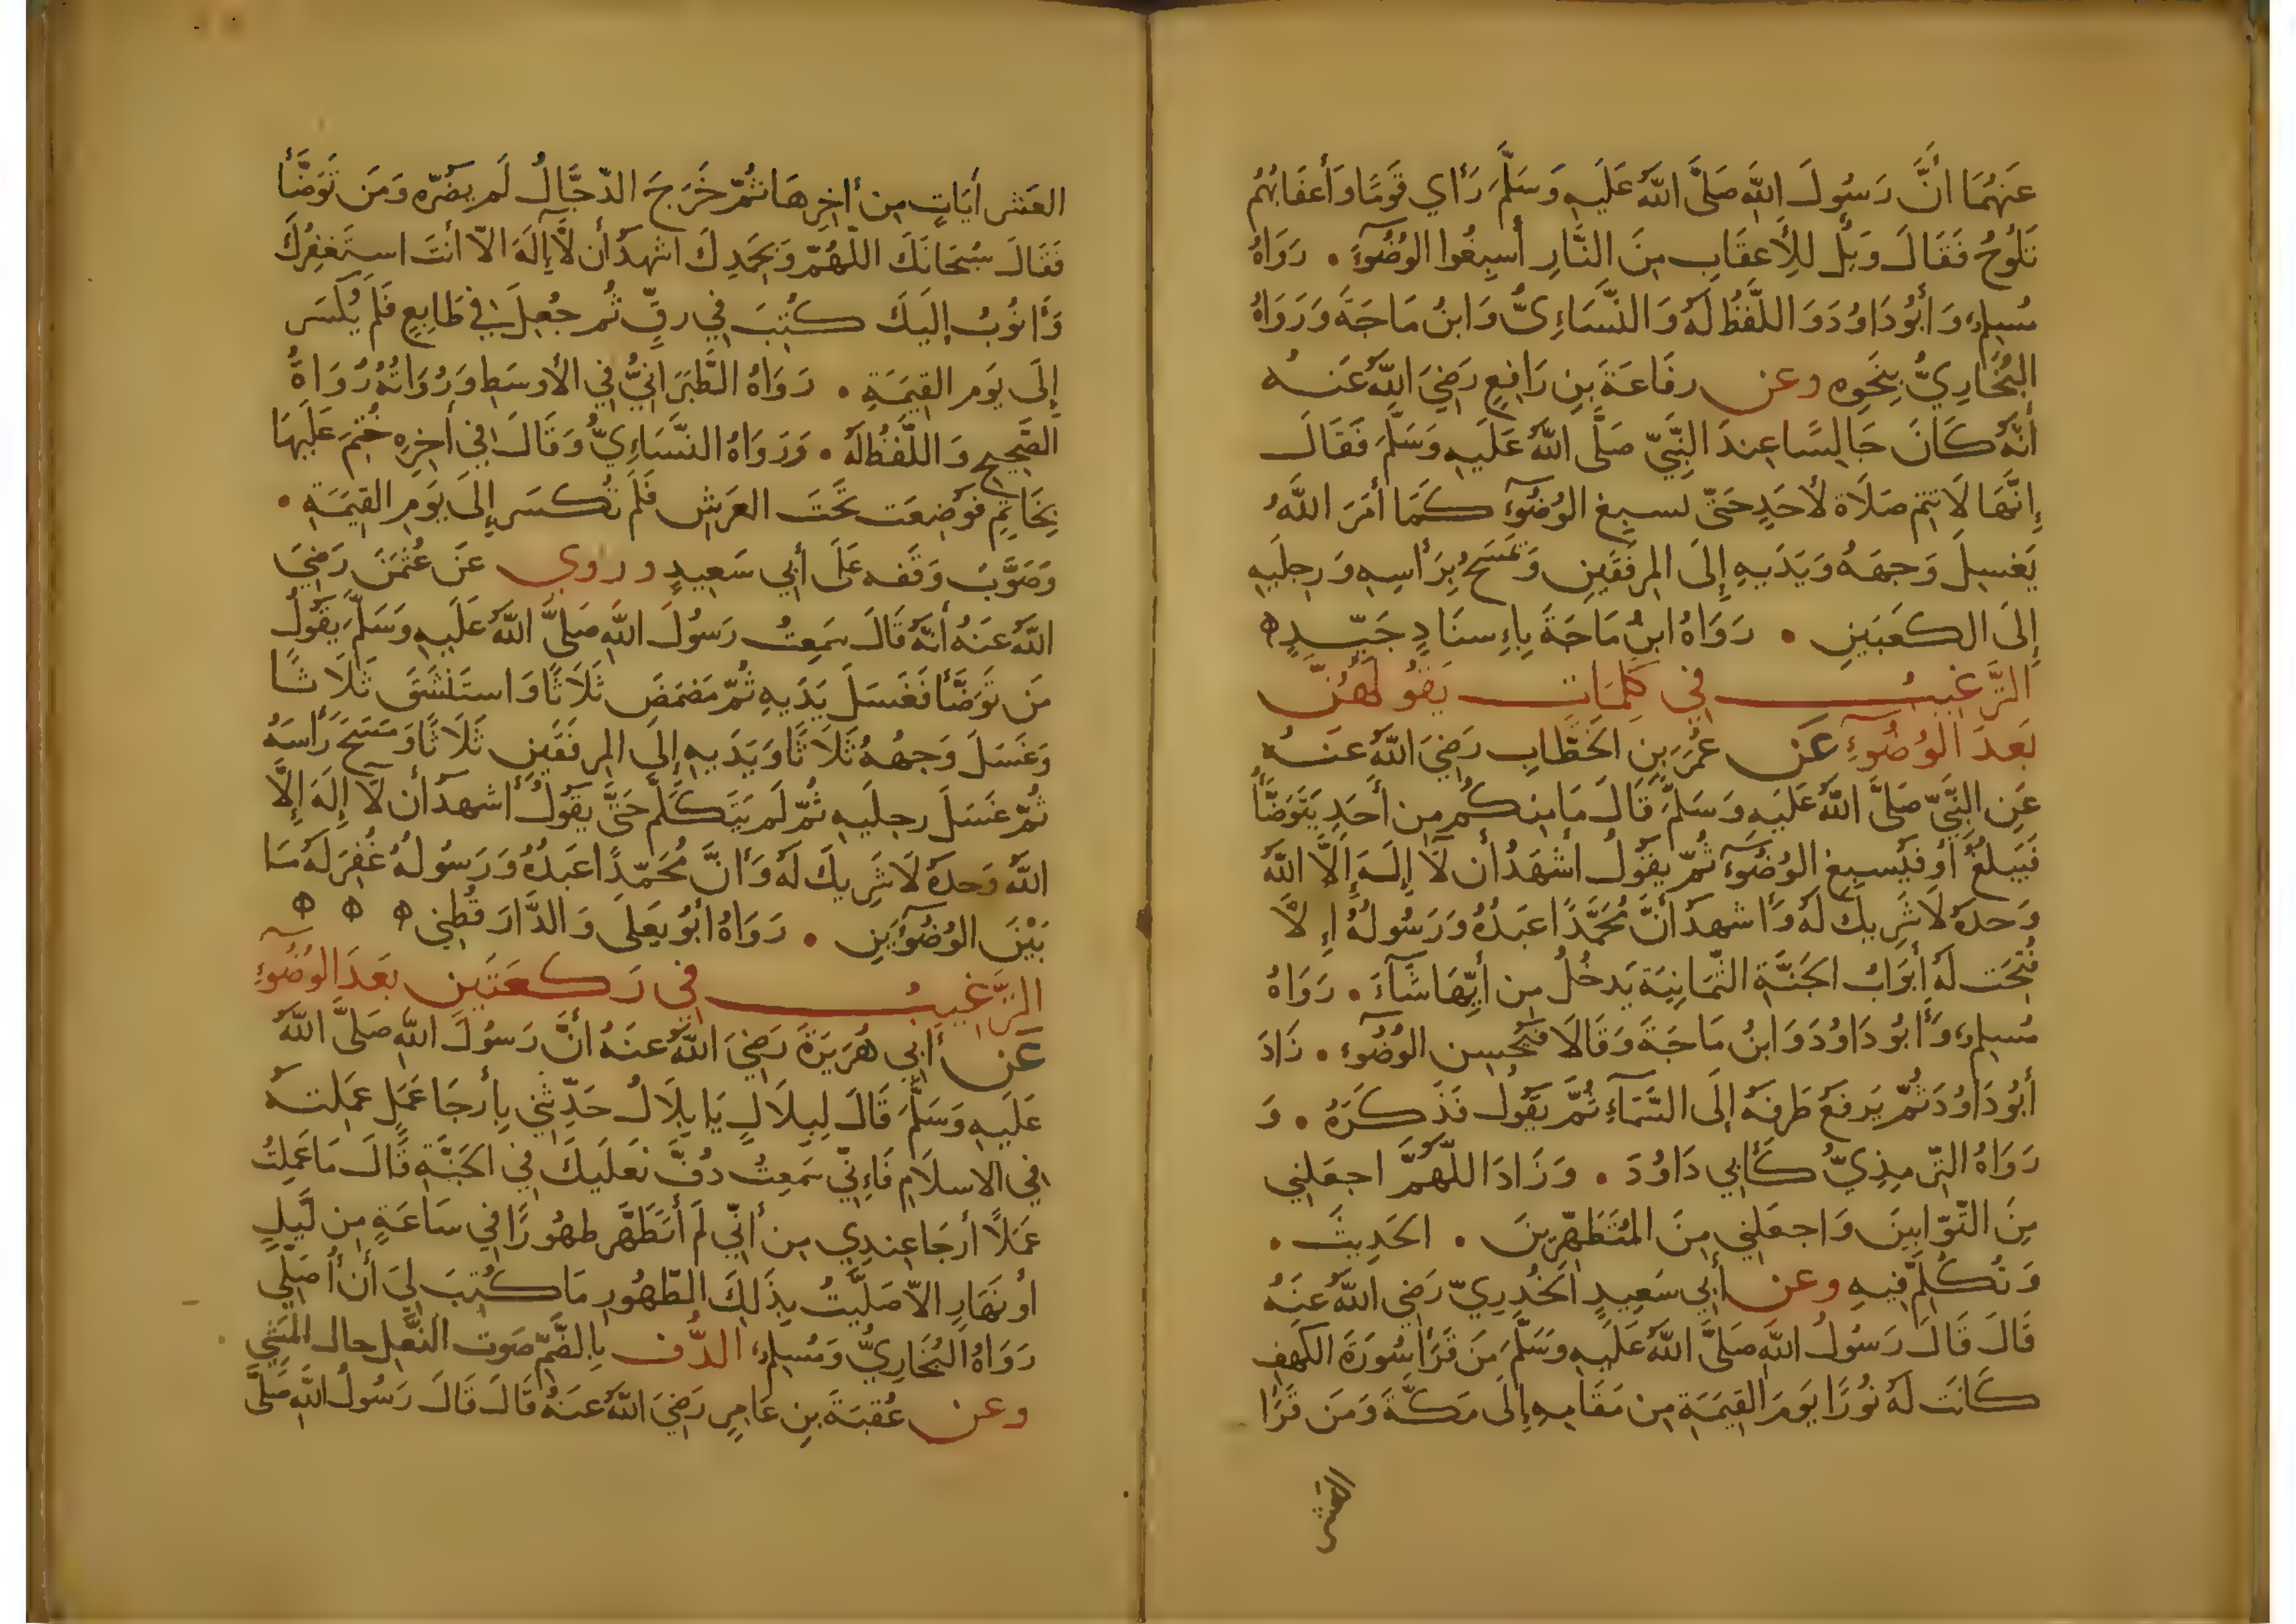 عَنهُمَا أَنَّ رَسُولَ اللَّهِ صَلَّى اللَّهُ عَلَيهِ وَسَلَّمَ رَأي قَومًا وَأَعقَابُهُم
تَلُوحُ فَقَالَ وَيلٌ لِلأَعقَابِ مِنَ النَّارِ أَسبِغُوا الوُضُوءَ • رَوَاهُ
مُسلِمٌ وَأَبُو دَاوُدَ وَاللَّفظُ لَهُ وَالنَّسَاءِىُّ وَابنُ مَاجَةَ وَرَوَاهُ
البُخَارِيُّ بِنَحوِهِ وعن رِفَاعَةَ بنِ رَافِعٍ رَضِيَ اللَّهُ عَنهُ
أَنَّهُ كَانَ جَالِسًا عِندَ النَّبِيِّ صَلَّى اللَّهُ عَلَيهِ وَسَلَّمَ فَقَالَ
إِنَّهَا لَا تَتِمُّ صَلَاة لأَحَدٍ حَتَّى يُسبِغ الوُضُوءَ كَمَا أَمَرَ اللَّهُ
يَغسِلَ وَجهَهُ وَيَدَيهِ إِلَى المِرفَقَينِ وَيَمسَحُ بِرَأسِهِ وَرِجلَيهِ
إِلَى الكَعبَينِ • رَوَاهُ ابنُ مَاجَةَ بِإِسنَادٍ جَيِّدٍ
التَّرغِيبُ في كَلِمَاتٍ يَقُولُهُنَّ
بَعدَ الوُضُوءِ عَن عُمَرَ بنِ الخَطَّابِ رَضِيَ اللَّهُ عَنهُ
عَنِ النَّبِيِّ صَلَّى اللَّهُ عَلَيهِ وَسَلَّمَ قَالَ مَا مِنكُم مِن أَحَدٍ يَتَوَضَّأُ
فَيَبلُغُ أَو فَيُسبِغ الوُضُوءَ ثُمَّ يَقُولُ أَشهَدُ أَن لَّا إِلَهَ إِلَّا اللَّهُ
وَحدَهُ لَا شَرِيكَ لَهُ وَأَشهَدُ أَنَّ مُحَمَّدًا عَبدُهُ وَرَسُولُهُ إِلَّا
فُتِحَت لَهُ أَبوَابُ الجَنَّةِ الثَّمَانِيَة يَدخُلُ مِن أَيِّهَا شَآءَ • رَوَاهُ
مُسلِمٌ وَأَبُو دَاوُدَ وَابنُ مَاجَةَ وَقَالَا فَيُحسِن الوُضُوءَ • زَادَ
أَبُو دَاوُدَ ثُمَّ يَرفَعُ طَرفَهُ إِلَى السَّمَآءِ ثُمَّ يَقُولُ فَذَكَرَهُ • وَ
رَوَاهُ التِّرمِذِيُّ كَأَبِي دَاوُدَ • وَزَادَ اللَّهُمَّ اجعَلنِي
مِنَ التَّوَّابِينَ وَاجعَلنِي مِنَ المُتَطَهِّرِينَ • الحَدِيثَ •
وَتُكُلِّمَ فِيهِ وعن أَبِي سَعِيدٍ الخُدرِيِّ رَضِيَ اللَّهُ عَنهُ
قَالَ قَالَ رَسُولُ اللَّهِ صَلَّى اللَّهُ عَلَيهِ وَسَلَّمَ مَن قَرَأَ سُورَةَ الكَهفِ
كَانَت لَهُ نُورًا يَومَ القِيَمَةِ مِن مَقَامِهِ إِلَى مَكَّةَ وَمَن قَرَأ
العشر
العَشر أيَاتٍ مِن أخِرِهَا ثُمَّ خَرَجَ الدَّجَّالُ لَم يَضُرّه وَمَن تَوَضَّأَ
فَقَالَ سُبحَانَكَ اللَّهُمَّ وَبِحَمدِكَ اشهَدُ أَن لَّا إِلَهَ الَّا أَنتَ استَغفِرُكَ
وَأَتُوبُ إِلَيكَ كُتِبَ فِي رِقٍّ ثُم جُعِلَ في طَابِعٍ فَلَم يُكسَر
إِلَى يَومِ القِيَمَةِ • رَوَاهُ الطَّبَرَانِيُّ فِي الأَوسَطِ وَرُوَاتُهُ رُوَاةُ
الصَّحِيحِ وَاللَّفظُ لَهُ • وَرَوَاهُ النَّسَاءِيُّ وَقَالَ فِي أخِرِهِ خُتِمَ عَلَيهَا
بِخَاتِمٍ فَوُضِعَت تَحتَ العَرشِ فَلَم تُكسَر إِلَى يَومِ القِيَمَةِ •
وَصَوَّبَ وَقفَه عَلَى أَبِي سَعِيدٍ وروي عَن عُثمَنَ رَضِيَ
اللَّهُ عَنهُ أَنَّهُ قَالَ سَمِعتُ رَسُولَ اللَّهِ صَلَّى اللَّهُ عَلَيهِ وَسَلَّمَ يَقُولُ
مَن تَوَضَّأَ فَغَسَلَ يَدَيهِ ثُمَّ مَضمَضَ ثَلَاثًا وَاستَنشَقَ ثَلَاثًا
وَغَسَلَ وَجهَهُ ثَلَاثًا وَيَدَيهِ إِلَى المِرفَقَينِ ثَلَاثًا وَمَسَحَ رَأسَهُ
ثُمَّ غَسَلَ رِجلَيهِ ثُمَّ لَم يَتَكَلَّم حَتَّى يَقُولَ أَشهَدُ أَن لَّا إِلَهَ إِلَّا
اللَّهُ وَحدَهُ لَا شَرِيكَ لَهُ وَأَنَّ مُحَمَّدًا عَبدُهُ وَرَسُولُهُ غُفِرَ لَهُ مَا
بَيْنَ الوُضُوءَينِ • رَوَاهُ أَبُو يَعلَى وَالدَّارَقُطنِي
التَّرغِيبُ فِي رَكعَتَينِ بَعدَ الوُضُوءِ
عَن أَبِي هُرَيرَةَ رَضِيَ اللَّهُ عَنهُ أَنَّ رَسُولَ اللَّهِ صَلَّى اللَّهُ
عَلَيهِ وَسَلَّمَ قَالَ لِبِلَالٍ يَا بِلَالُ حَدِّثنِي بِأَرجَا عَمَلٍ عَمِلتَهُ
فِي الاسلَامِ فَإِنِّي سَمِعتُ دُفَّ نَعلَيكَ فِي الجَنَّةِ قَالَ مَا عَمِلتُ
عَمَلًا أَرجَا عِندِي مِن أَنِّي لَم أَتَطَهَّر طهُورًا فِي سَاعَةٍ مِن لَّيلٍ
أَو نَهَارٍ الَّا صَلَّيتُ بِذَلِكَ الطّهُورِ مَا كُتِبَ لِيَ أَن أُصَلِّي
رَوَاهُ البُخَارِيُّ وَمُسلِمٌ الدُّف بِالضَّمِّ صَوت النَّعلِ حال المَشي
وعن عُقبَةَ بنِ عَامِرٍ رَضِيَ اللَّهُ عَنهُ قَالَ قَالَ رَسُولُ اللَّهِ صَلَّى